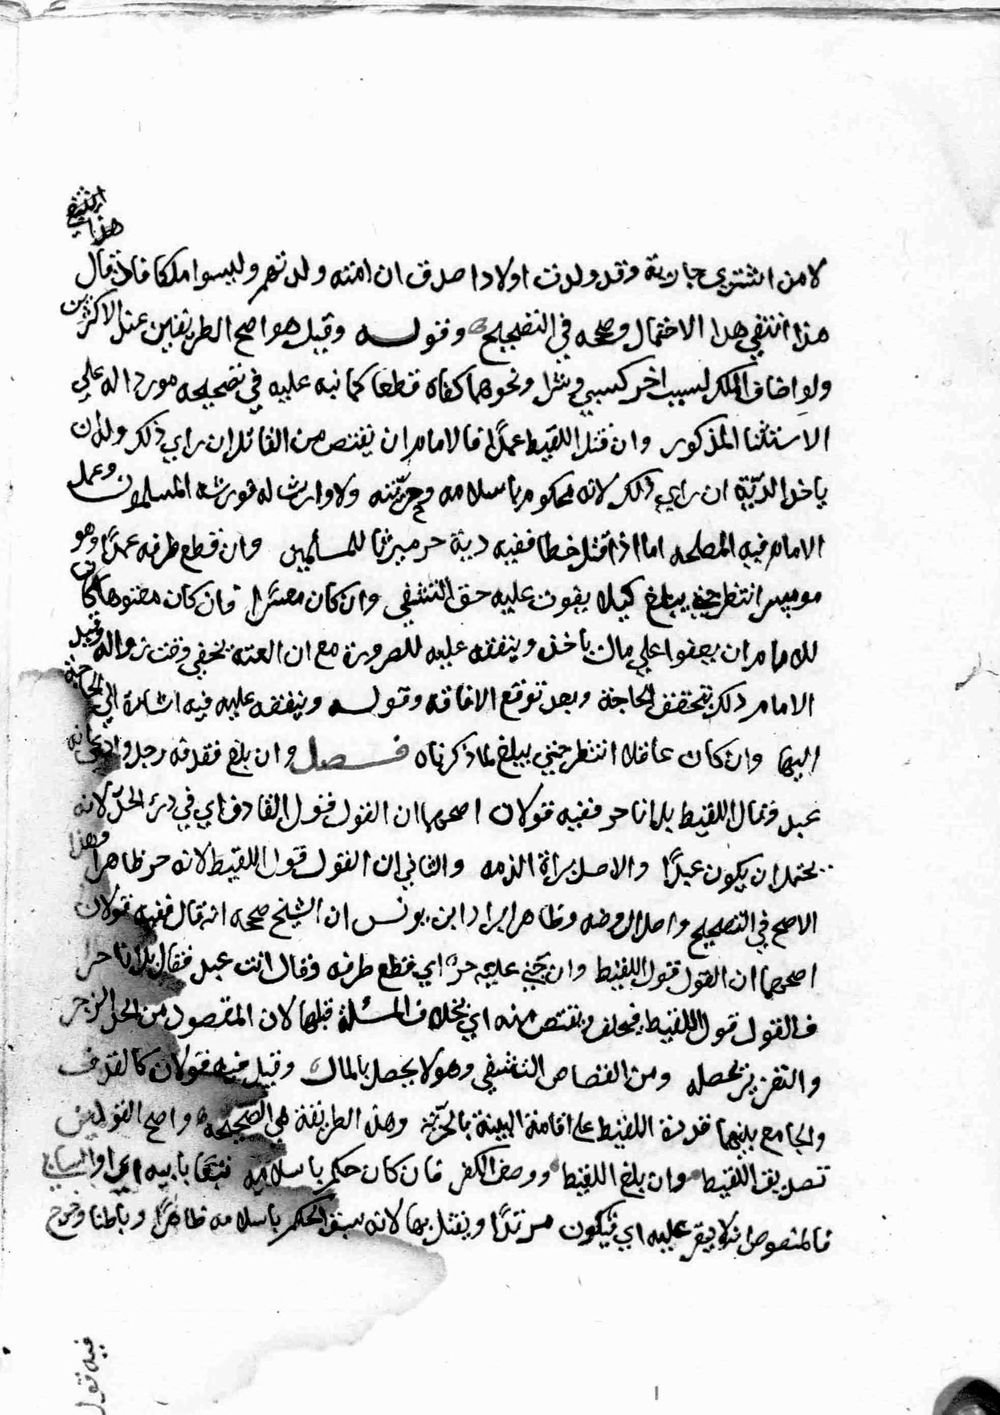 اشتري
هذا
لا من اشترى جارية وقد ولدت اولادا صدق ان امته ولدتهم وليسوا ملكا فاذا قال
هذا انتفي هذا الاحتمال وصححه في التصحيح وقوله وقيل هو اصح الطريقين عند الاكثرين
ولو اضاف الملك لسبب اخر كسبي وشرا ونحوهما كفاه قطعا كما نبه عليه في تصحيحه موردا له علي
الاستثنا المذكور وان قتل اللقيط عمدا فالامام ان يقتص من القاتل ان راي ذلك وله ان
ياخذ الدية ان راي ذلك لانه محكوم باسلامه وحريته ولا وارث له فورثه المسلمون وعمل
الامام فيه المصلحه اما اذا قتل خطا ففيه دية حر ميراثا للمسلمين وان قطع طرفه عمدا وهو
موسر انتظر حتى يبلغ كيلا يفوت عليه حق التشفي وان كان معسرا فان كان معتوها كان
للامام ان يعفوا علي مال ياخذه وينفقه عليه للضرورة مع ان العته يخفي وقت زواله وقيل
الامام ذلك بتحقق الحاجة وبعد توقع الافاقه وقوله وينفقه عليه فيه اشارة الي الحاجة
اليها وان كان عاقلا انتظر حتي يبلغ لما ذكرناه فصل وان بلغ فقذفه رجل وادعي انه
عبد وقال اللقيط بل انا حر ففيه قولان اصحهما ان القول قول القاذف اي في درء الحد لانه
يحتمل ان يكون عبدا والاصل براة الذمه والثاني ان القول قول اللقيط لانه حر ظاهرا وهذا
الاصح في التصحيح واصل الروضه وظاهر ايراد ابن يونس ان الشيخ صححه انه قال ففيه قولان
اصحهما ان القول قول اللقيط وان جني عليه حر اي قطع طرفه وقال انت عبد فقال بل انا حرا
فالقول قول اللقيط فيحلف ويقتص منه اي بخلاف المسئلة قبلها لان المقصود من الحد الزجر
والتعزير يحصله ومن القصاص التشفي وهو لا يحصل بالمال وقيل فيه قولان كالقذف
والجامع بينهما قدرة اللقيط على اقامة البينة بالحرية وهذه الطريقة هي الصحيحة واصح القولين
تصديق اللقيط وان بلغ اللقيط ووصف الكفر فان كان حكم باسلامه تبعا بابيه اي او السابي
فالمنصوص انه لا يقر عليه اي فيكون مرتدا ويقتل بها لانه سبق الحكم باسلامه ظاهرا وباطنا وخرج
فيه قول